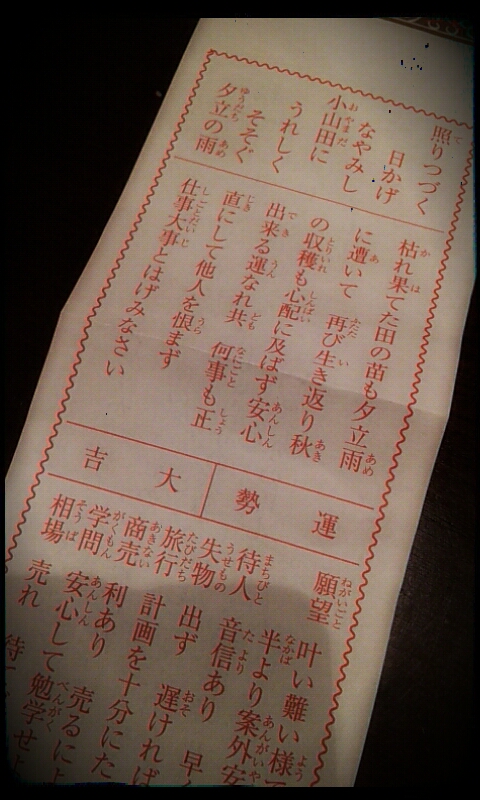 照りつづく
日かげ
なやみし
小山田に
うれしく
そそぐ
夕立の雨
枯れ果てた田の苗も夕立雨
に遭いて 再び生き返り秋
の収穫も心配に及ばず安心
出来る運なれ共 何事も正
直にして他人を恨まず
仕事大事とはげみなさい
運勢
大吉
願望 叶い難い様で
半より案外安
待人 音信あり 早く
失物 出ず 遅ければ
旅行 計画を十分にた
商売 利あり 売るによ
学問 安心して勉学せよ
相場 売れ 待て